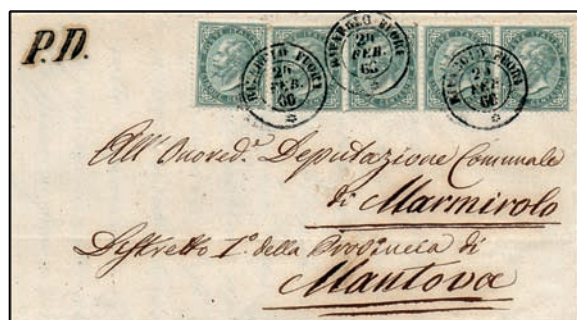 P.D.
POSTE ITALIANE
RIVAROLO FUORI
20
FEB.
66
RIVAROLO FUORI
20
FEB.
66
RIVAROLO FUORI
20
FEB.
66
All' Onored.ᵉ Deputazione Comunale
di Marmirolo
Distretto I.º della Provincia di
Mantova